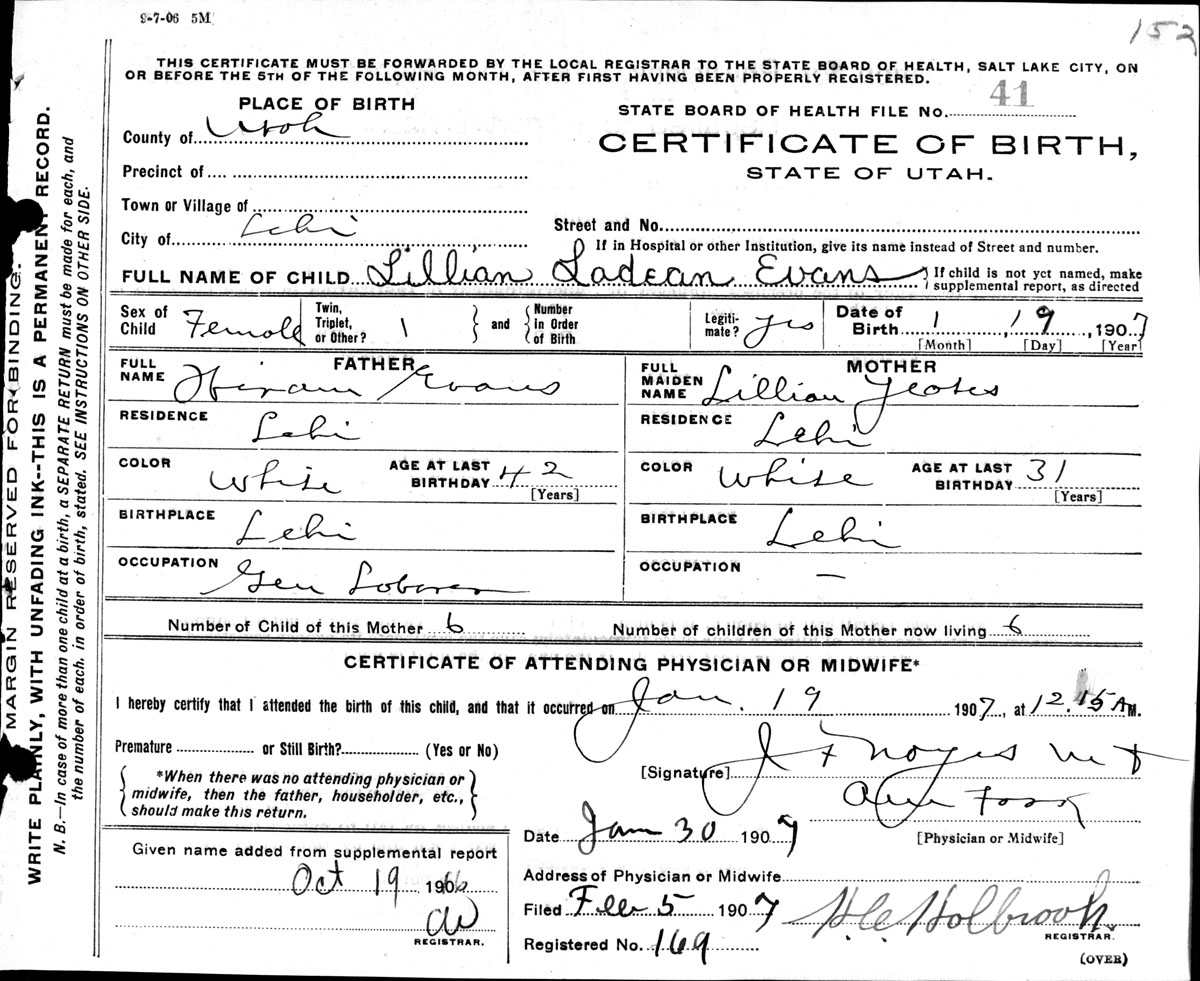 9-7-06 5M
152
THIS CERTIFICATE MUST BE FORWARDED BY THE LOCAL REGISTRAR TO THE STATE BOARD OF HEALTH, SALT LAKE CITY, ON
OR BEFORE THE 5TH OF THE FOLLOWING MONTH, AFTER FIRST HAVING BEEN PROPERLY REGISTERED.
PLACE OF BIRTH
STATE BOARD OF HEALTH FILE No. 41
County of Utah
CERTIFICATE OF BIRTH,
STATE OF UTAH.
Precinct of
Town or Village of
City of Lehi
Street and No.
If in Hospital or other Institution, give its name instead of Street and number.
FULL NAME OF CHILD Lillian Ladean Evans { If child is not yet named, make supplemental report, as directed
Sex of Child Female Twin, Triplet, or Other? 1 } and { Number in Order of Birth Legiti-mate? yes Date of Birth 1, 19, 1907
[Month] [Day] [Year]
FATHER
FULL NAME Hiram Evans
RESIDENCE Lehi
COLOR White AGE AT LAST BIRTHDAY 42 [Years]
BIRTHPLACE Lehi
OCCUPATION Gen Laborer
MOTHER
FULL MAIDEN NAME Lillian Yeates
RESIDENCE Lehi
COLOR White AGE AT LAST BIRTHDAY 31 [Years]
BIRTHPLACE Lehi
OCCUPATION —
Number of Child of this Mother 6 Number of children of this Mother now living 6
CERTIFICATE OF ATTENDING PHYSICIAN OR MIDWIFE*
I hereby certify that I attended the birth of this child, and that it occurred on Jan. 19 1907, at 12.15 A M.
Premature or Still Birth? (Yes or No)
{ *When there was no attending physician or
midwife, then the father, householder, etc.,
should make this return. }
[Signature] J F Noyes M D
[Physician or Midwife]
Date Jan 30 1907
Given name added from supplemental report
Oct 19 1966
REGISTRAR.
Address of Physician or Midwife
Filed Feb 5 1907 H.C. Holbrook.
REGISTRAR.
Registered No. 169
(OVER)
MARGIN RESERVED FOR BINDING.
WRITE PLAINLY, WITH UNFADING INK--THIS IS A PERMANENT RECORD.
N. B.—In case of more than one child at a birth, a SEPARATE RETURN must be made for each, and
the number of each. in order of birth, stated. SEE INSTRUCTIONS ON OTHER SIDE.